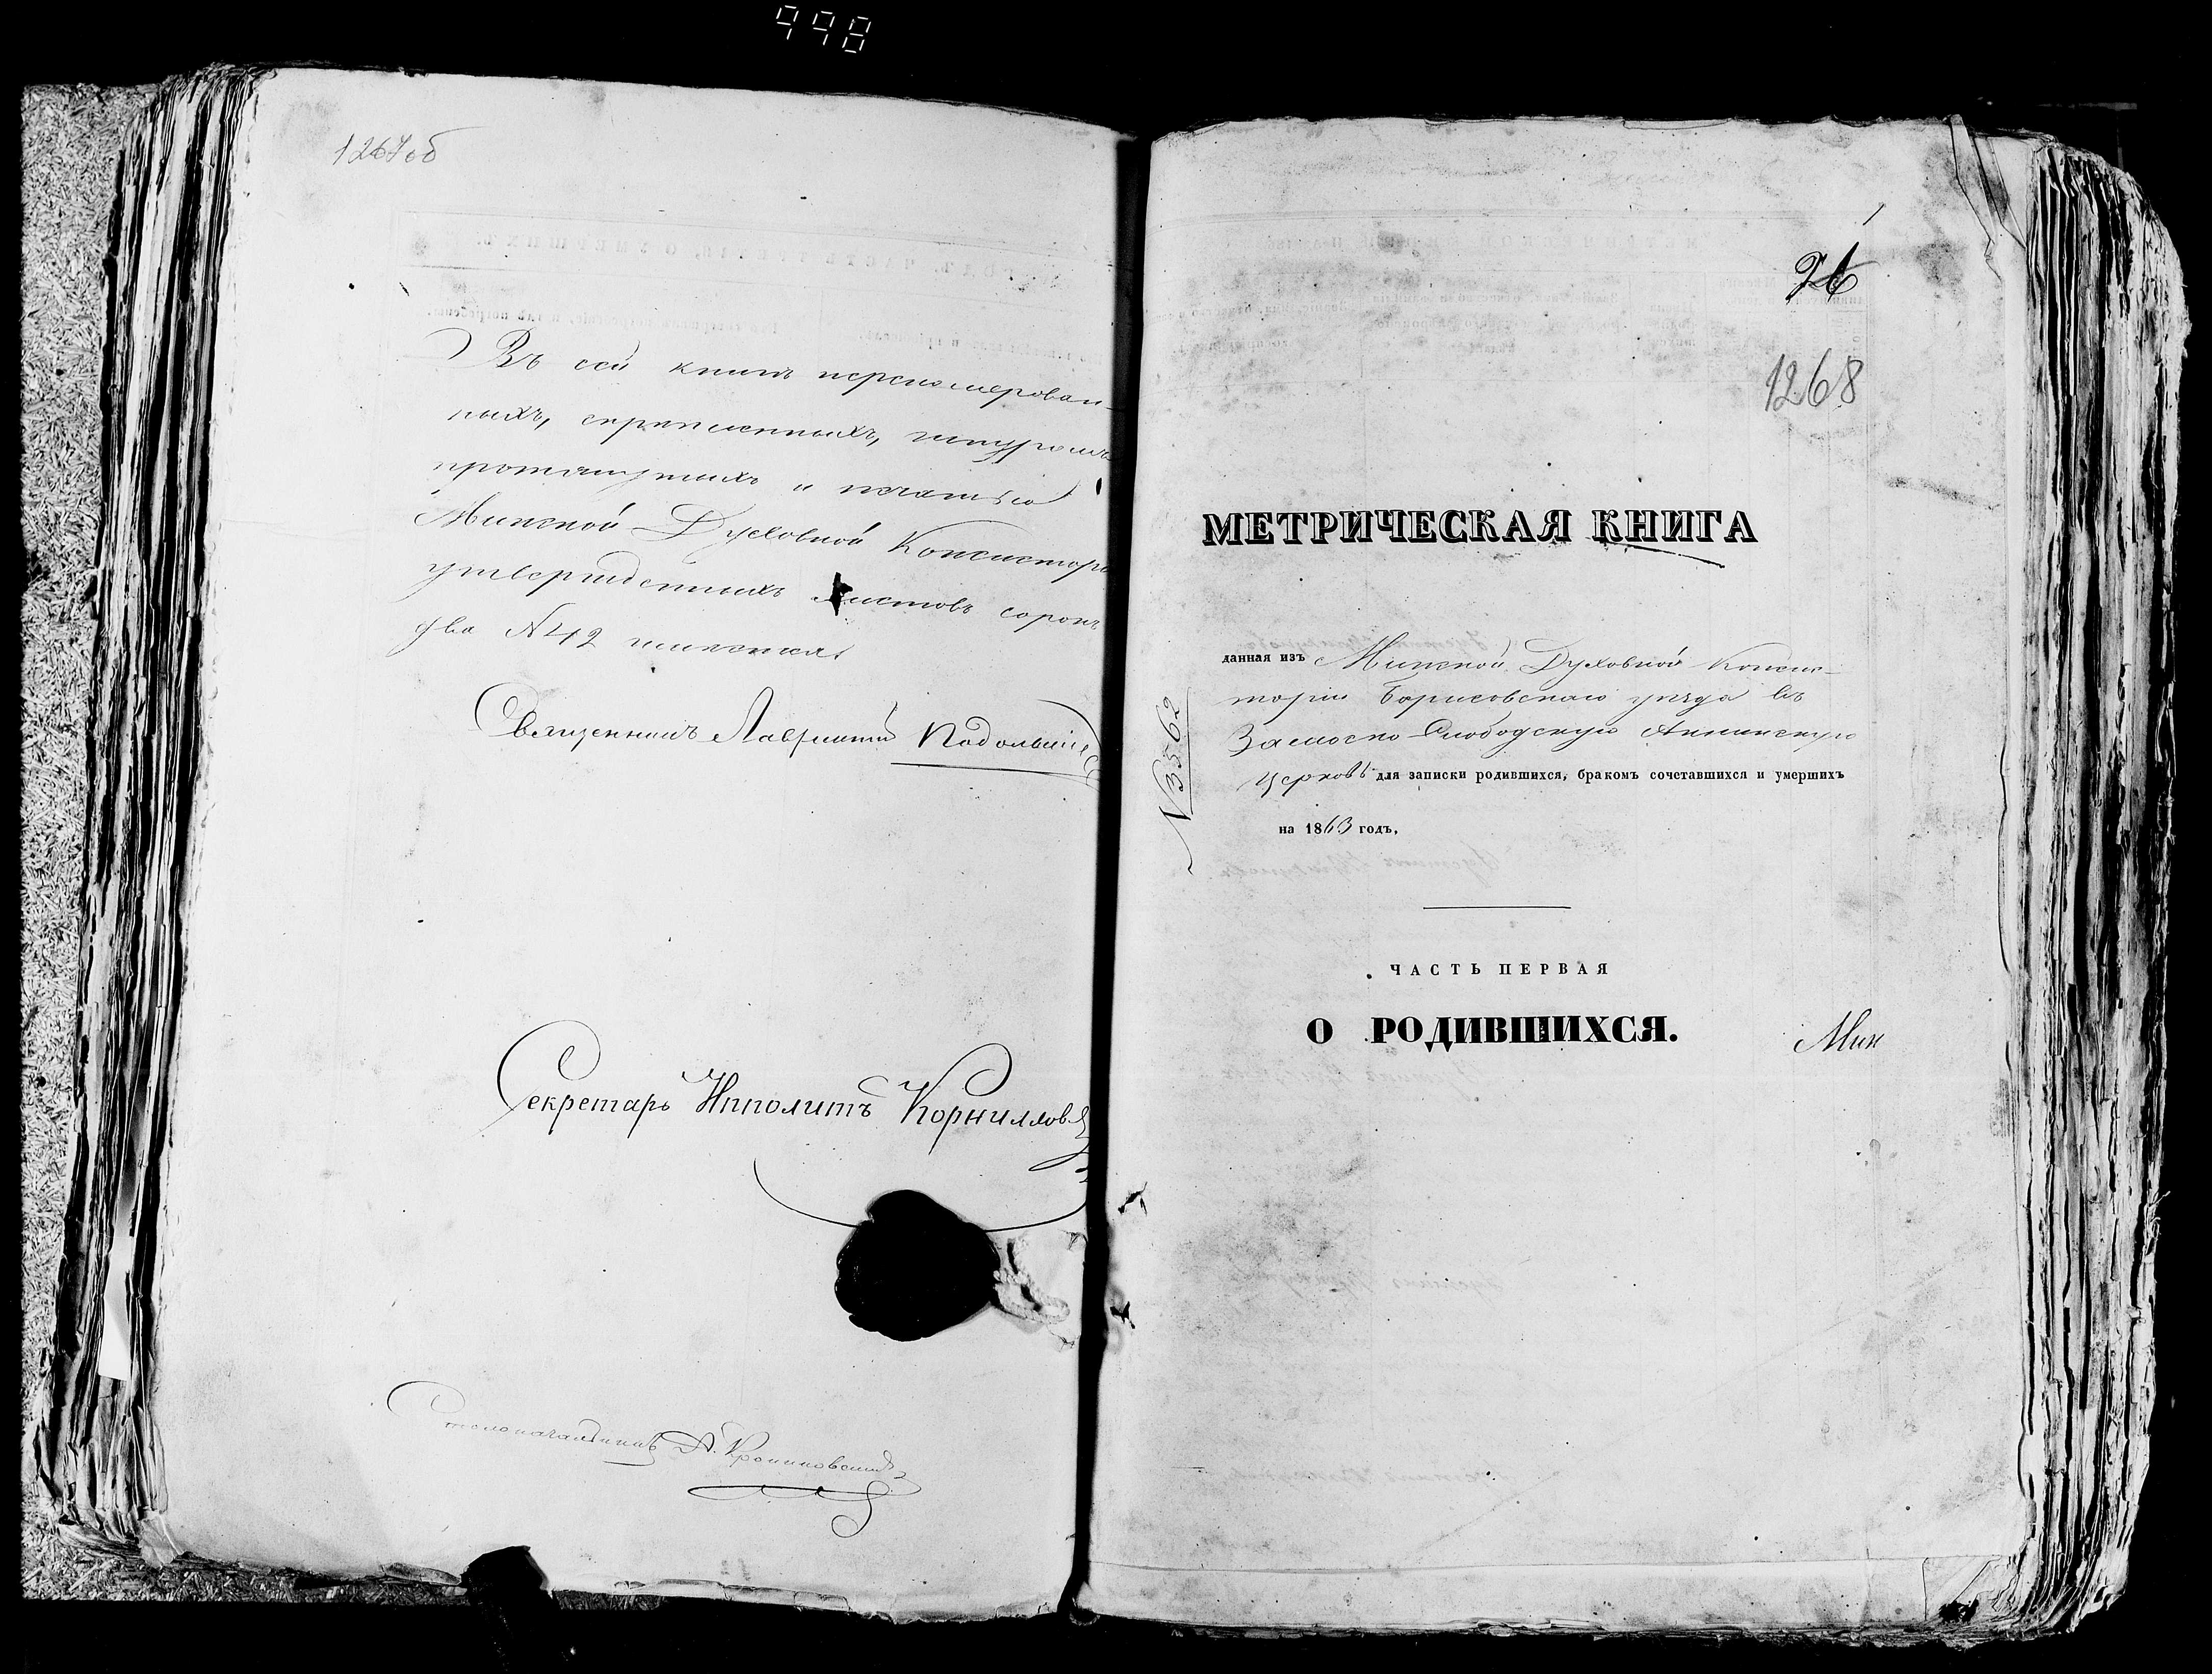 998
1267об
Въ сей книгѣ перенумерован-
ныхъ, скрѣпленныхъ, шнуромъ
протянутыхъ и печатью
Минской Духовной Консисторі
утвержденныхъ листовъ сорокъ
два №42 имѣется
Священникъ Лаврентій
Секретарь Ипполитъ Корниллов
Столоначальникъ
1
1268
МЕТРИЧЕСКАЯ КНИГА
данная изъ Минской Духовной Консис-
торіи Борисовскаго уѣзда въ
Замоско-Слободскую Аннинскую
церковь для записки родившихся, бракомъ сочетавшихся и умершихъ
на 1863 годъ,
N 3562
ЧАСТЬ ПЕРВАЯ
О РОДИВШИХСЯ.
Мин